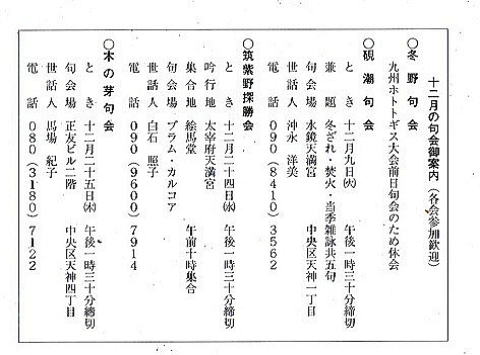 十二月の句会御案内（各会参加歓迎）
○冬野句会
九州ホトトギス大会前日句会のため休会
○硯潮句会
とき 十二月九日(火) 午後一時三十分締切
兼題 冬ざれ・焚火・当季雑詠共五句
句会場 水鏡天満宮 中央区天神一丁目
世話人 沖永 洋美
電話 090(8410)3562
○筑紫野探勝会
とき 十二月二十四日(水) 午後一時三十分締切
吟行地 太宰府天満宮
集合地 絵馬堂 午前十時集合
句会場 プラム・カルコア
世話人 白石 照子
電話 090(9600)7914
○木の芽句会
とき 十二月二十五日(木) 午後一時三十分締切
句会場 正友ビル二階 中央区天神四丁目
世話人 馬場 紀子
電話 080(3180)7122